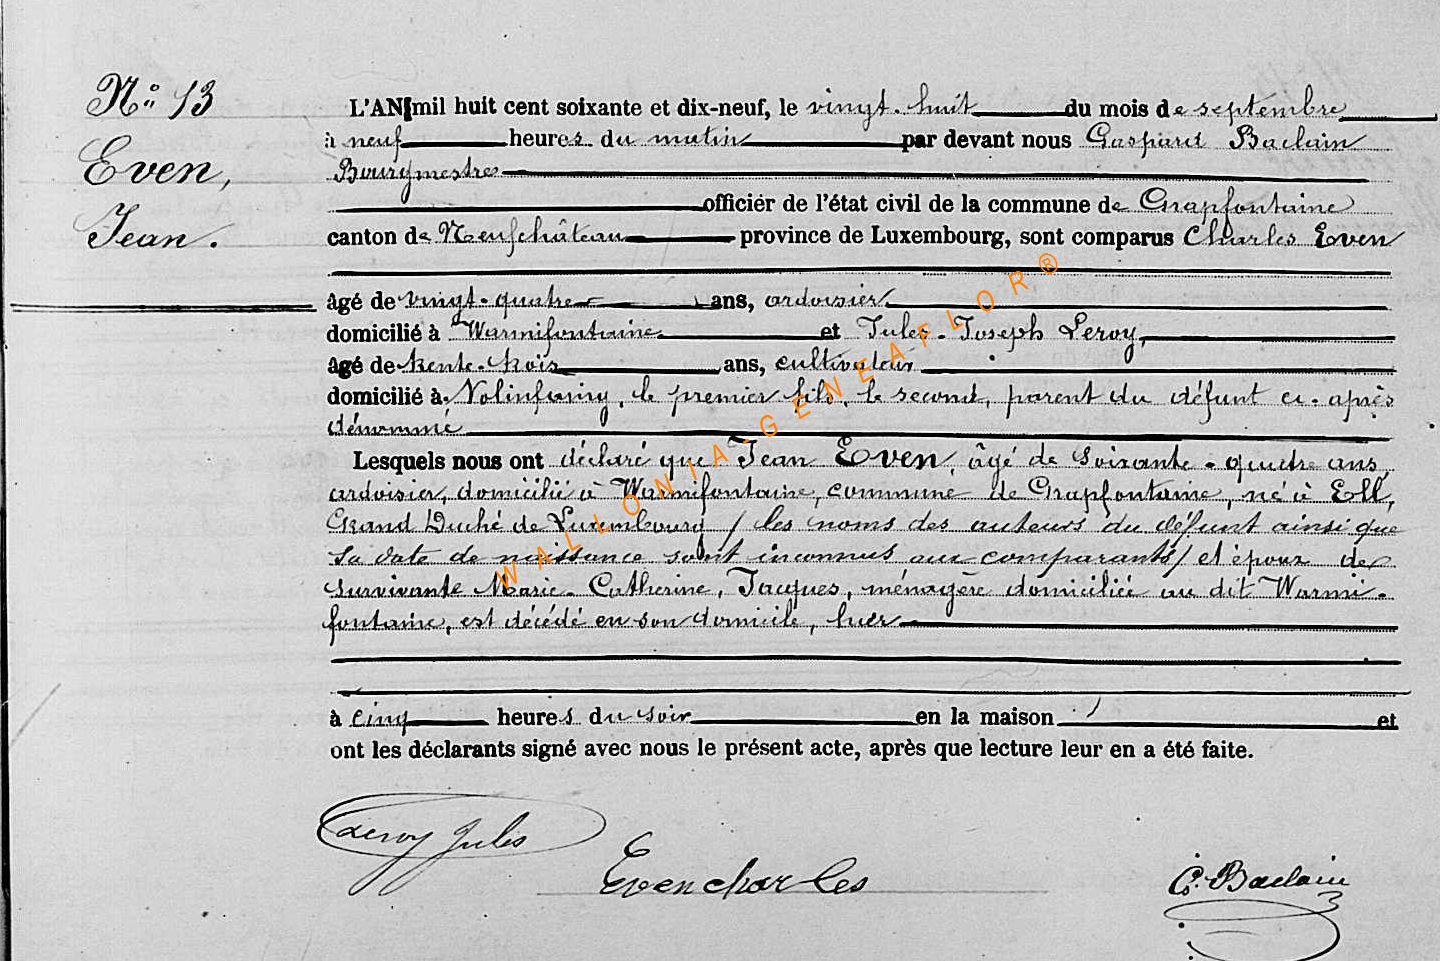 N° 13
Even,
Jean.
L'AN mil huit cent soixante et dix-neuf, le vingt-huit du mois de septembre
à neuf heures du matin par devant nous Gaspard Baclain
Bourgmestre
officier de l'état civil de la commune de Grapfontaine
canton de Neufchâteau province de Luxembourg, sont comparus Charles Even
âgé de vingt-quatre ans, ardoisier
domicilié à Warmifontaine et Jules-Joseph Leroy,
âgé de trente-trois ans, cultivateur
domicilié à Nolinfaing, le premier fils, le second, parent du défunt ci-après
dénommé
Lesquels nous ont déclaré que Jean Even, âgé de soixante-quatre ans
ardoisier, domicilié à Warmifontaine, commune de Grapfontaine, né à Ell,
Grand Duché de Luxembourg / les noms des auteurs du défunt ainsi que
sa date de naissance sont inconnus aux comparants / et époux de
survivante Marie-Catherine, Jacques, ménagère domiciliée au dit Warmi-
fontaine, est décédé en son domicile, hier
à cinq heures du soir en la maison / et
ont les déclarants signé avec nous le présent acte, après que lecture leur en a été faite.
Leroy Jules
Even charles
G. Baclain
WALLONIA-GENEAFLOR®